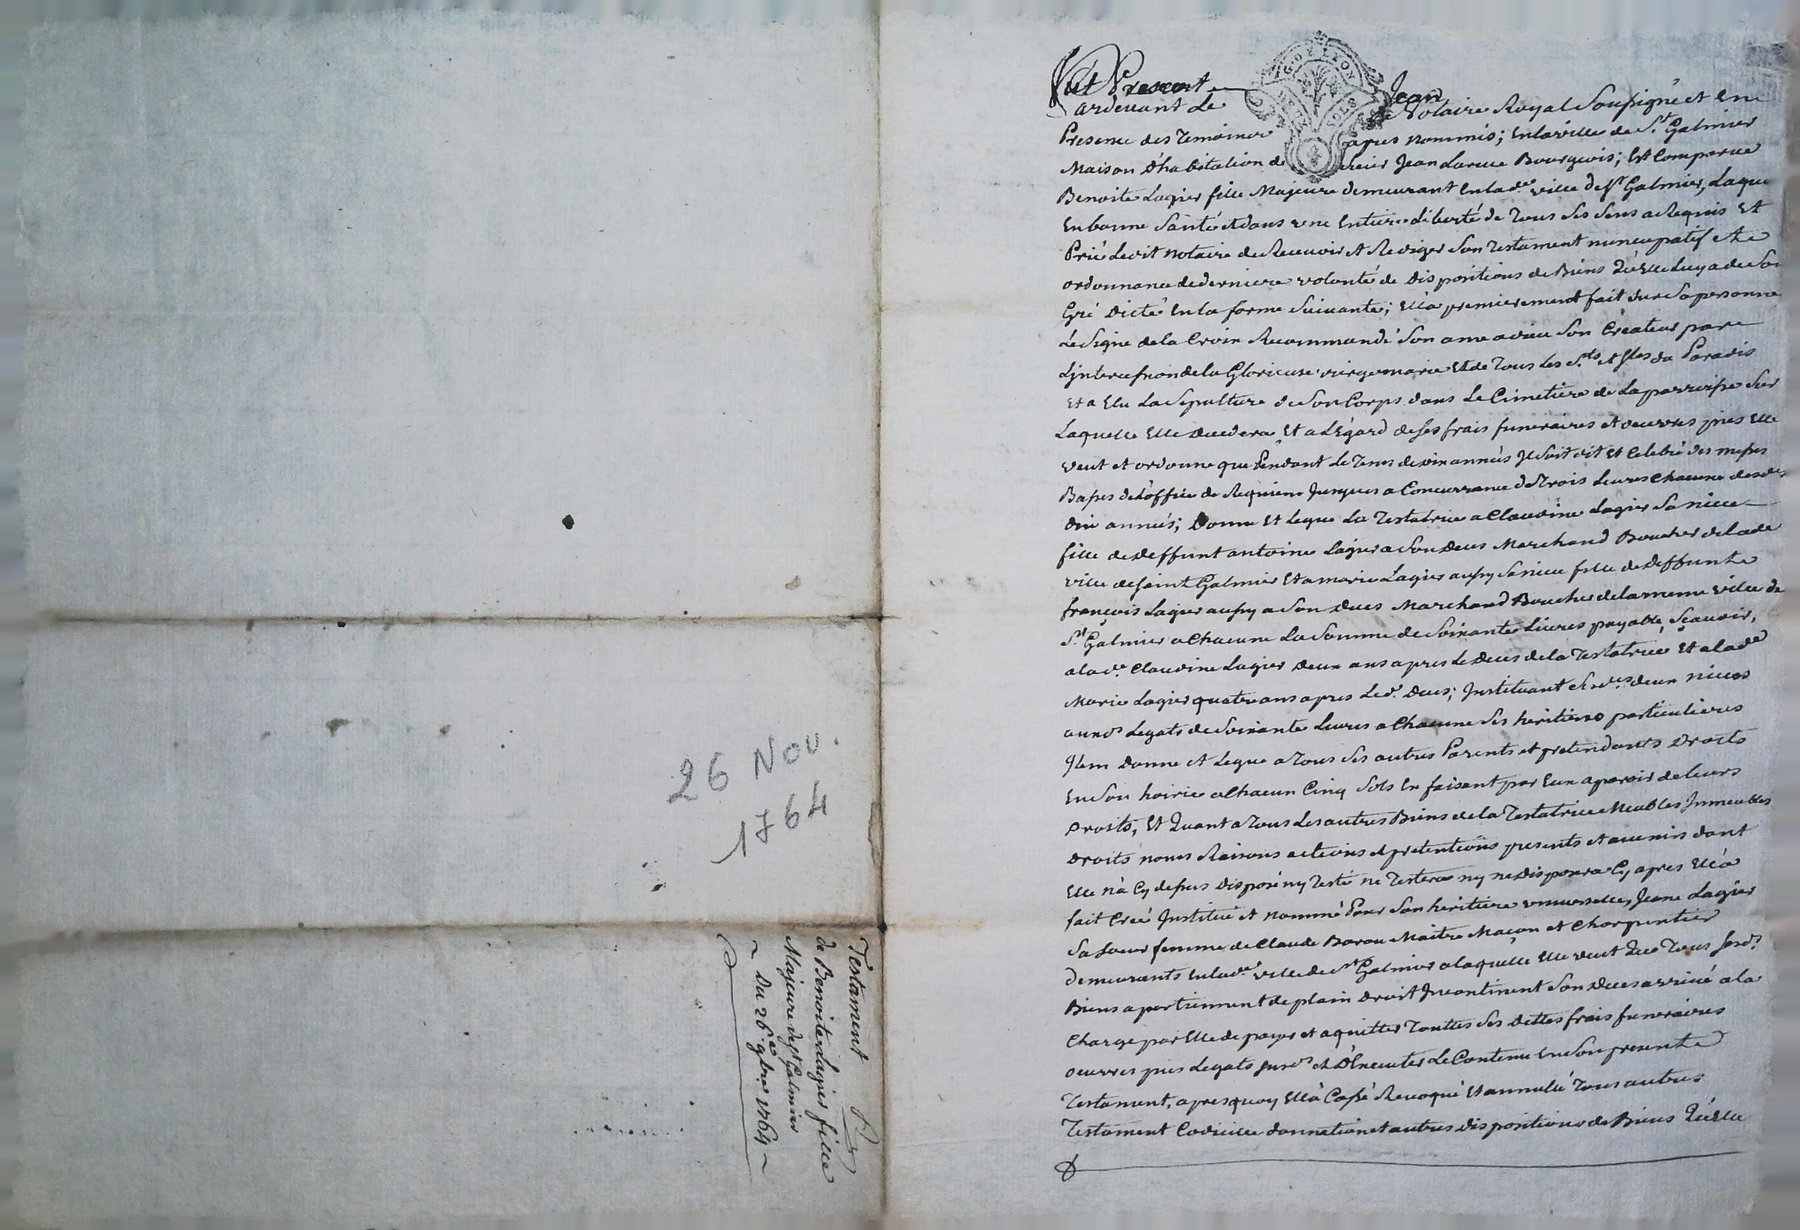 26 Nov.
1764
Testament
de Benoite Lagier fille
Majeure de St Galmier
Du 26e 9bre 1764
G. DE LYON
SOLS
fut Present Jean
Pardevant Le Notaire Royal Soussigné et En
Presence des Temoins apres nommés; En la ville de St Galmier
Maison D'habitation de Jean Larue Bourgeois; Est Comparue
Benoite Lagier fille Majeure demeurant En lade ville de St Galmier, Laque
En bonne Santé et dans une Entiere Liberté de Tous Ses Sens a Requis Et
Prié Ledit Notaire de Recevoir et Rediger Son Testament nuncupatif et
ordonnance de derniere volonté de Dispositions de Biens Qu'Elle Luy a de Son
Gré Dicté En la forme Suivante; Ell'a premierement fait Sur Sa personne
Le Signe de la Croix Recommandé Son ame a Dieu Son Createur par
L'intercession de la Glorieuse vierge marie Et de Tous Les Sts et Stes du Paradis
Et a Elu La Sepulture de Son Corps dans Le Cimetiere de La parroisse Sur
Laquelle Elle Decedera, Et a L'Egard de Ses frais funeraires et oeuvres pies Elle
veut et ordonne que Pendant Le Tems de dix années Il Soit dit Et Celebré des messes
Basses de L'office de Requiem Jusques a Concurrance de Trois Livres Chacune desdes
dix années; Donne Et Legue La Testatrice a Claudine Lagier Sa niece
fille de Deffunt antoine Lagier a Son Deces Marchand Boucher de lade
ville de Saint Galmier Et a marie Lagier aussy Sa niece fille de Deffunt
françois Lagier aussy a Son Deces Marchand Boucher de la meme ville de
St Galmier a Chacune La Somme de Soixante Livres payable, Sçavoir,
a lade Claudine Lagier Deux ans apres Le Deces de la Testatrice Et a lade
Marie Lagier quatre ans apres Led. Deces; Instituant Sesdes deux nieces
auxds Legats de Soixante Livres a Chacune Ses heritieres particulieres
Item Donne et Legue a Tous Ses autres Parents et pretendants Droits
En Son hoirie a Chacun Cinq Sols En faisant par Eux aparoir de leurs
Droits, Et Quant a Tous Les autres Biens de la Testatrice Meubles Immeubles
Droits noms Raisons actions et pretentions presents et avenirs dont
Elle n'a Cy dessus Disposé ny Testé ne Testera ny ne Disposera Cy apres Ell'a
fait Creé Institué et nommé Pour Son heritiere universelle, Jeane Lagier
Sa Soeur femme de Claude Barou Maître Maçon et Charpentier
demeurants En lade ville de St Galmier a laquelle Elle veut Que Tous Sesds
Biens apartiennent de plain Droit Incontinent Son Deces arrivé a la
Charge par Elle de payer et aquitter Toutes Ses Dettes frais funeraires
oeuvres pies Legats Susds et D'Executer Le Contenu En Son present
Testament, apres quoy Ell'a Cassé Revoqué Et annullé Tous autres
Testament Codicille donnation et autres dispositions de Biens Qu'Elle